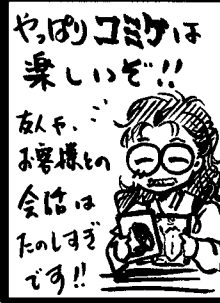 やっぱりコミケは
楽しいぞ!!
友人や、
お客様との
会話は
たのしすぎ
です!!